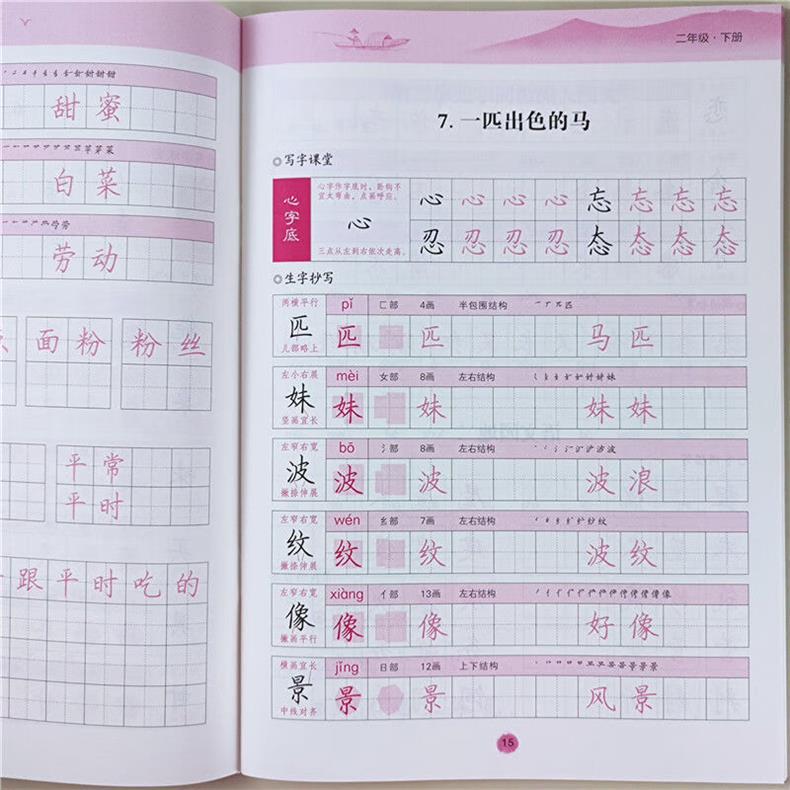 甜蜜
白菜
劳动
面粉 粉丝
平常
平时
跟平时吃的
二年级·下册
7. 一匹出色的马
写字课堂
心字底
心字作字底时，卧钩不
宜太弯曲，点画呼应。
心
三点从左到右依次走高。
心 心 心 心 忘 忘 忘 忘
忍 忍 忍 忍 态 态 态 态
生字抄写
两横平行 pǐ 匚部 4画 半包围结构
匹 匹 匹 马匹
儿部略上
左小右展 mèi 女部 8画 左右结构
妹 妹 妹 妹妹
竖画宜长
左窄右宽 bō 氵部 8画 左右结构
波 波 波 波浪
撇捺伸展
左窄右宽 wén 纟部 7画 左右结构
纹 纹 纹 波纹
撇捺伸展
左窄右宽 xiàng 亻部 13画 左右结构
像 像 像 好像
撇画平行
横画宜长 jǐng 日部 12画 上下结构
景 景 景 风景
中线对齐
15